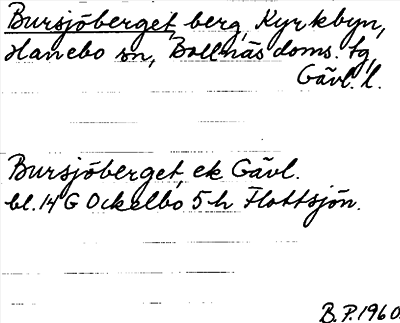 Bursjöberget, berg, Kyrkbyn,
Hanebo sn, Bollnäs doms. tg,
Gävl. l.
Bursjöberget, ek Gävl.
bl. 14 G Ockelbo 5 h Flottsjön.
B.P. 1960.